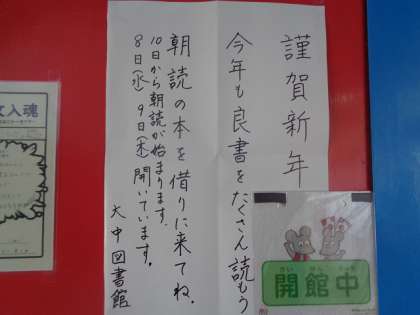 謹賀新年
今年も良書をたくさん読もう
朝読の本を借りに来てね.
10日から朝読が始まります.
8日(水) 9日(木)開いています.
大中図書館
かい かん ちゅう
開館中
文入魂